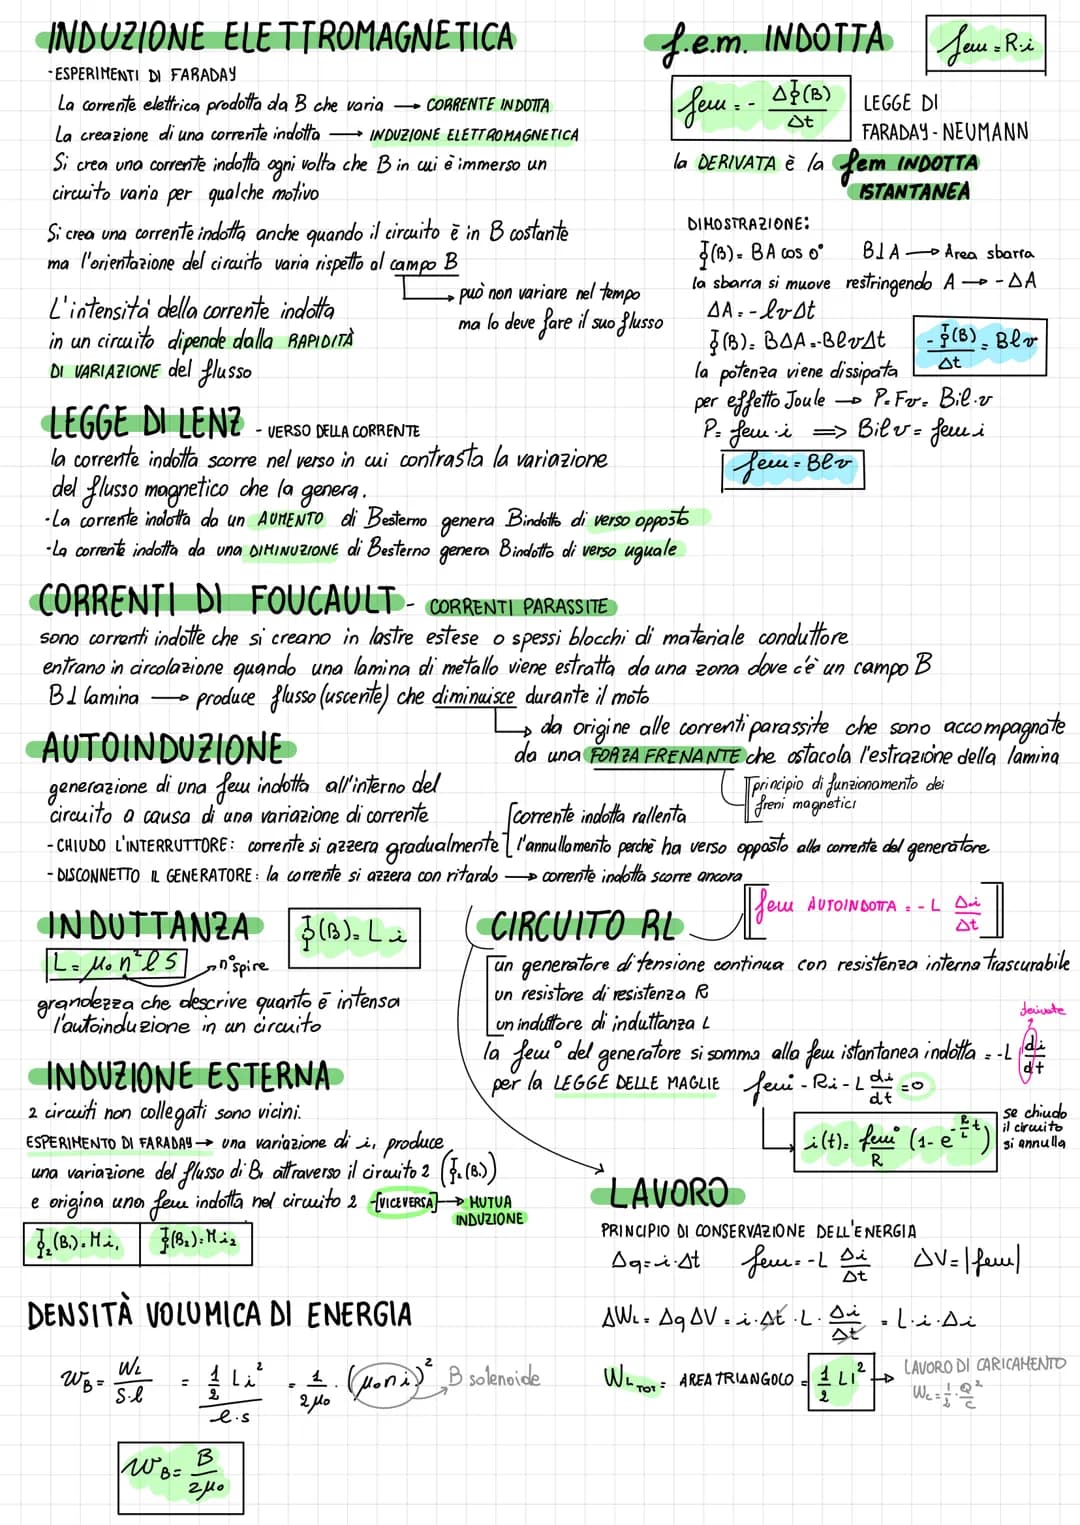 INDUZIONE ELETTROMAGNETICA
- ESPERIMENTI DI FARADAY
La corrente elettrica prodotta da B che varia → CORRENTE INDOTTA
La creazione di una corrente indotta → INDUZIONE ELETTROMAGNETICA
Si crea una corrente indotta ogni volta che B in cui è immerso un
circuito varia per qualche motivo
Si crea una corrente indotta anche quando il circuito è in B costante
ma l'orientazione del circuito varia rispetto al campo B
può non variare nel tempo
ma lo deve fare il suo flusso
L'intensità della corrente indotta
in un circuito dipende dalla RAPIDITÀ
DI VARIAZIONE del flusso
f.e.m. INDOTTA
fem = R·i
fem = - ΔΦ(B)/Δt
LEGGE DI
FARADAY - NEUMANN
la DERIVATA è la fem INDOTTA
ISTANTANEA
DIMOSTRAZIONE:
Φ(B) = BA cos 0° B⊥A → Area sbarra
la sbarra si muove restringendo A → -ΔA
ΔA = -lvΔt
Φ(B) = BΔA = -BlvΔt
-Φ(B)/Δt = Blv
la potenza viene dissipata
per effetto Joule → P = Fv = Bil·v
P = fem·i ⇒ Bilv = fem i
fem = Blv
LEGGE DI LENZ - VERSO DELLA CORRENTE
la corrente indotta scorre nel verso in cui contrasta la variazione
del flusso magnetico che la genera.
·La corrente indotta da un AUMENTO di Besterno genera Bindotto di verso opposto
·La corrente indotta da una DIMINUZIONE di Besterno genera Bindotto di verso uguale
CORRENTI DI FOUCAULT - CORRENTI PARASSITE
sono correnti indotte che si creano in lastre estese o spessi blocchi di materiale conduttore
entrano in circolazione quando una lamina di metallo viene estratta da una zona dove c'è un campo B
B⊥lamina → produce flusso (uscente) che diminuisce durante il moto
da origine alle correnti parassite che sono accompagnate
da una FORZA FRENANTE che ostacola l'estrazione della lamina
principio di funzionamento dei
freni magnetici
AUTOINDUZIONE
generazione di una fem indotta all'interno del
circuito a causa di una variazione di corrente
- CHIUDO L'INTERRUTTORE: corrente si azzera gradualmente
corrente indotta rallenta
l'annullamento perchè ha verso opposto alla corrente del generatore
- DISCONNETTO IL GENERATORE: la corrente si azzera con ritardo → corrente indotta scorre ancora
INDUTTANZA
Φ(B) = L i
L = μ₀ n² l S
n° spire
grandezza che descrive quanto è intensa
l'autoinduzione in un circuito
CIRCUITO RL
fem AUTOINDOTTA = -L Δi/Δt
un generatore di tensione continua con resistenza interna trascurabile
un resistore di resistenza R
un induttore di induttanza L
derivate
la fem° del generatore si somma alla fem istantanea indotta = -L di/dt
per la LEGGE DELLE MAGLIE fem - Ri - L di/dt = 0
i(t) = fem°/R (1 - e^(-R/L t))
se chiudo
il circuito
si annulla
INDUZIONE ESTERNA
2 circuiti non collegati sono vicini.
ESPERIMENTO DI FARADAY → una variazione di i₁ produce
una variazione del flusso di B₁ attraverso il circuito 2 (Φ₂(B₁))
e origina una fem indotta nel circuito 2 [VICEVERSA] → MUTUA
INDUZIONE
Φ₂(B₁) = Mi₁ Φ₁(B₂) = Mi₂
LAVORO
PRINCIPIO DI CONSERVAZIONE DELL'ENERGIA
Δq = i·Δt fem = -L Δi/Δt ΔV = |fem|
ΔW_L = Δq ΔV = i·Δt·L·Δi/Δt = L·i·Δi
W_L TOT = AREA TRIANGOLO = 1/2 LI² →
LAVORO DI CARICAMENTO
W_c = 1/2·Q²/C
DENSITÀ VOLUMICA DI ENERGIA
w_B = W_L/S·l = 1/2 Li²/l·s = 1/2μ₀ · (μ₀ni)² B solenoide
w_B = B/2μ₀